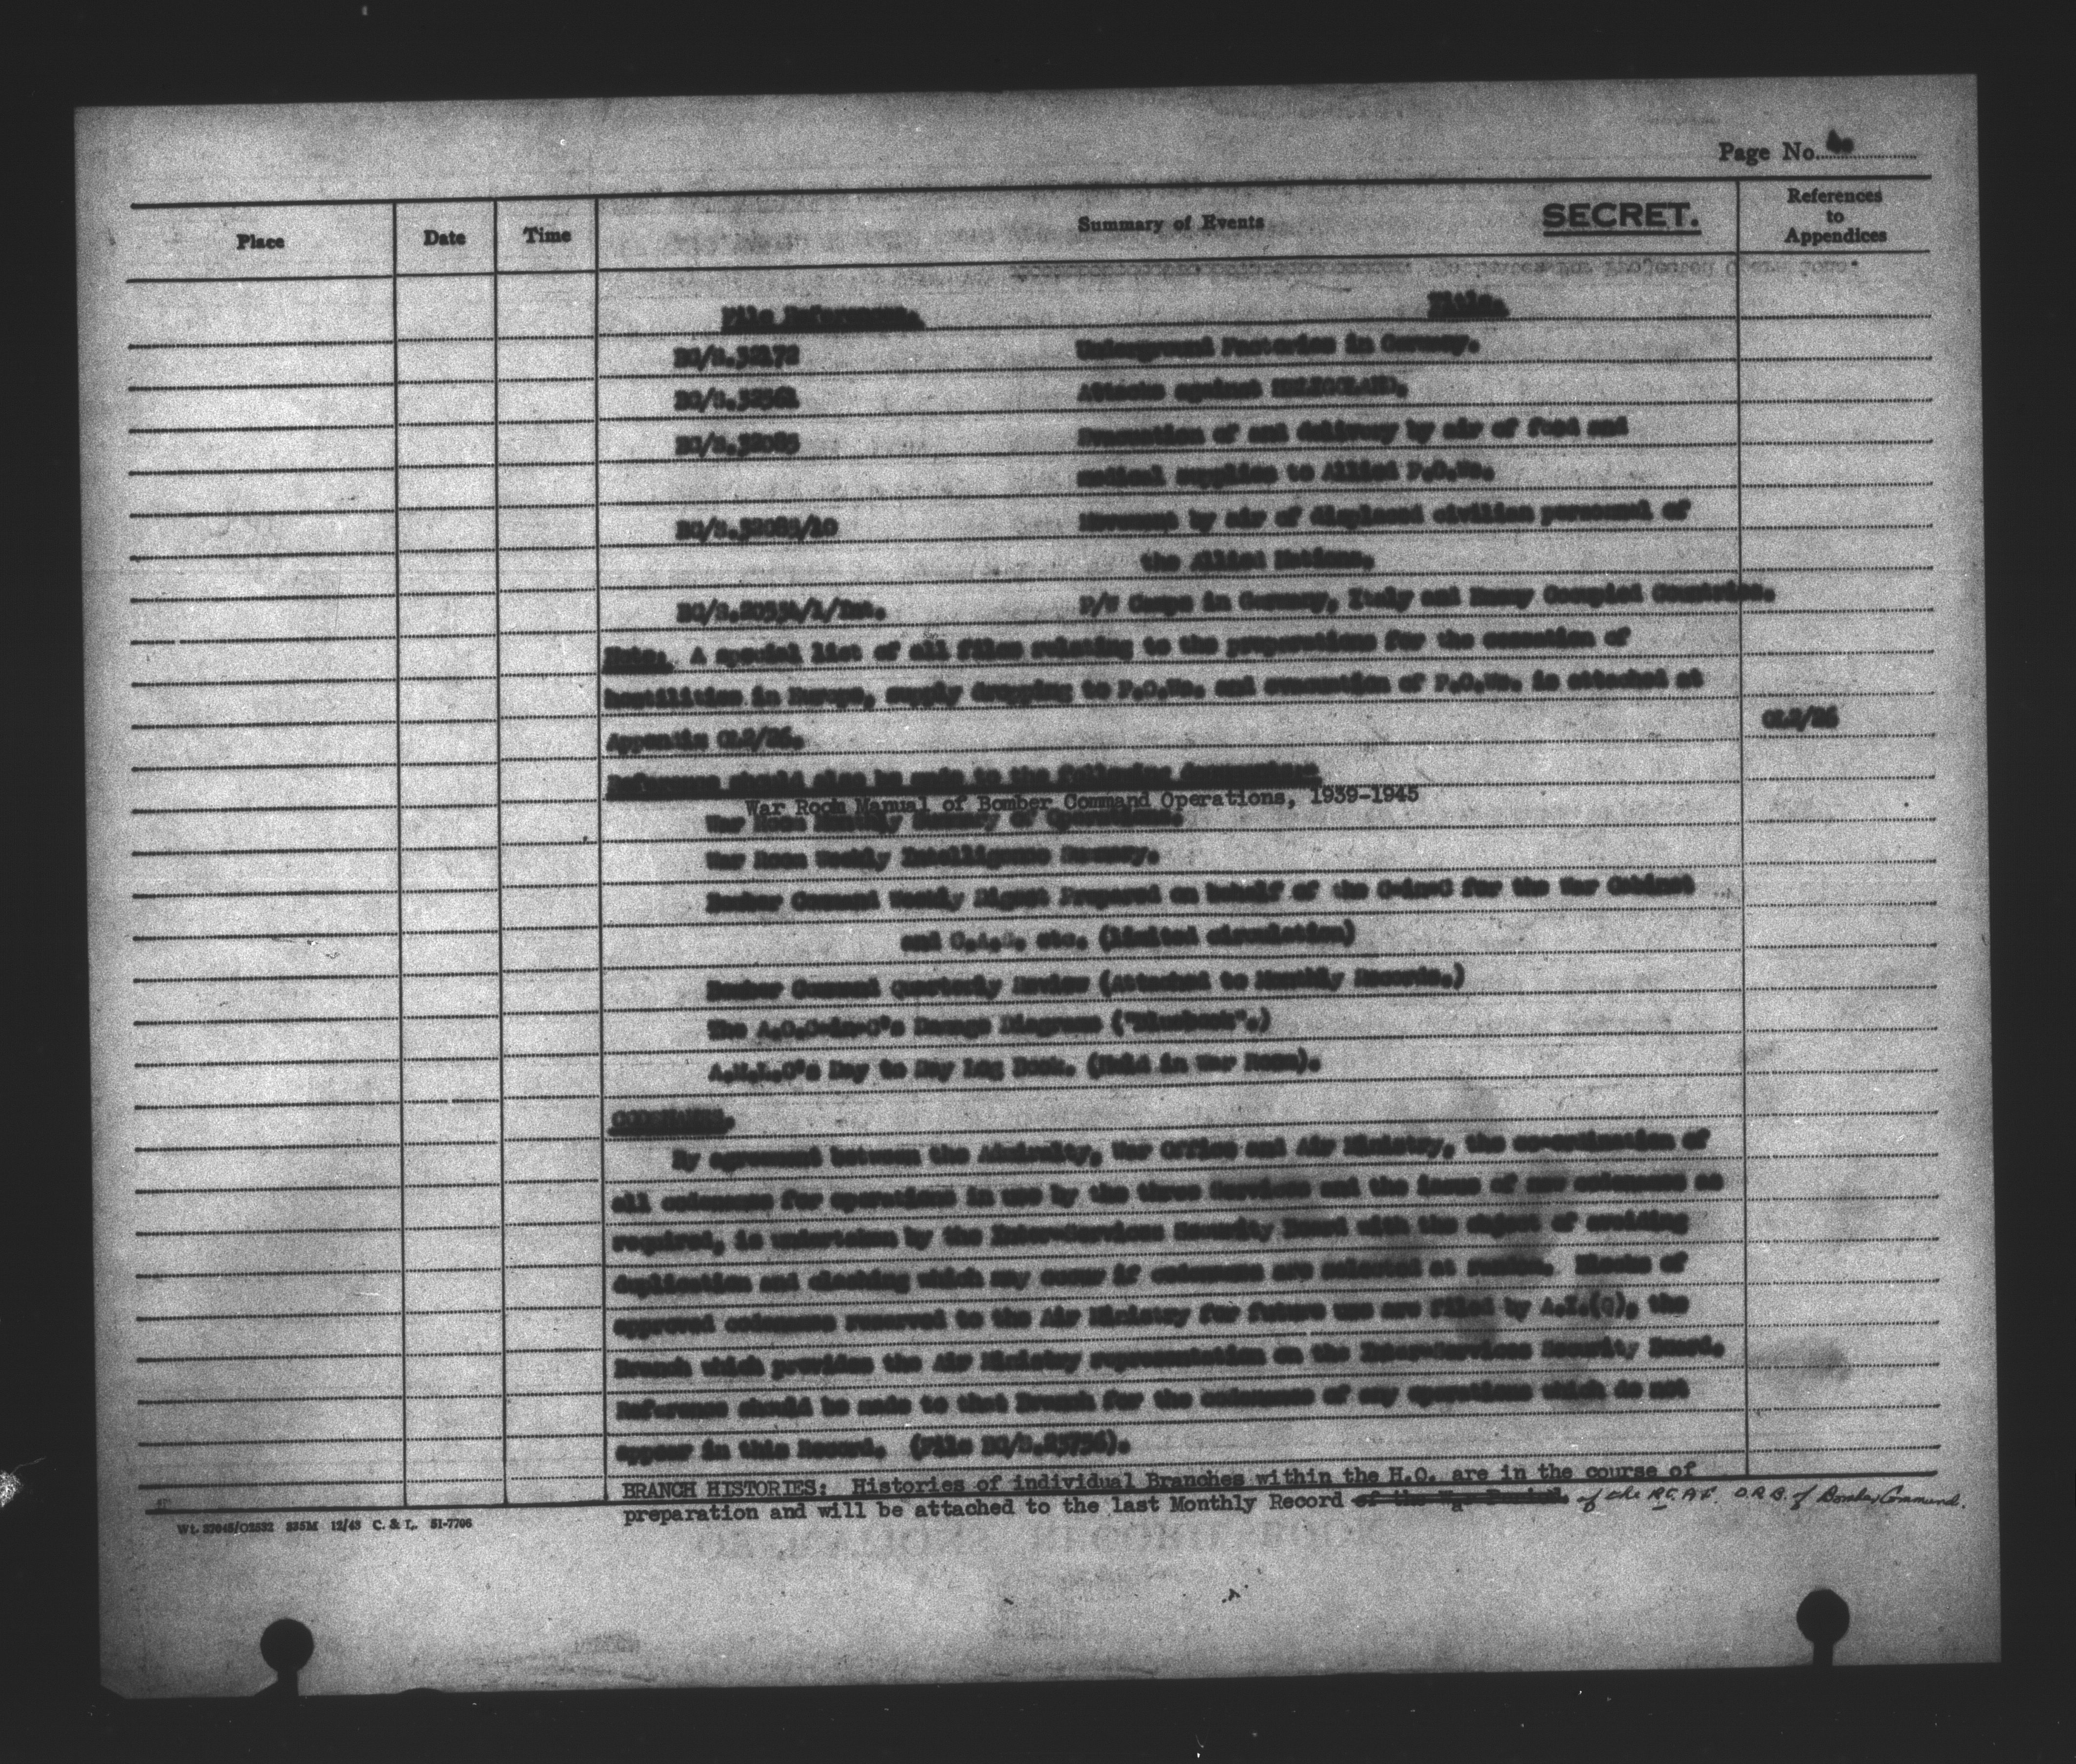 Page No.
Place
Date
Time
Summary of Events
SECRET.
References
to
Appendices
File Reference.
Title.
BC/S.32172
Underground Factories in Germany.
BC/S.32361
Attacks against HELIGOLAND.
BC/S.32085
Evacuation of and delivery by air of food and
medical supplies to Allied P.O.Ws.
BC/S.32085/10
Movement by air of displaced civilian personnel of
the Allied Nations.
BC/S.20554/1/Int.
P/W Camps in Germany, Italy and Enemy Occupied Countries.
Note: A special list of all files relating to the preparations for the cessation of
hostilities in Europe, supply dropping to P.O.Ws. and evacuation of P.O.Ws. is attached at
Appendix GL2/26.
GL2/26
Reference should also be made to the following documents:-
War Room Manual of Bomber Command Operations, 1939-1945
War Room Monthly Summary of Operations.
War Room Weekly Intelligence Summary.
Bomber Command Weekly Digest Prepared on behalf of the C-in-C for the War Cabinet
and C.A.S. etc. (limited circulation)
Bomber Command Quarterly Review (Attached to Monthly Records.)
The A.O.C-in-C's Damage Diagrams ("Bluebook".)
A.M.L.O's Day to Day Log Book. (Held in War Room).
CODENAMES.
By agreement between the Admiralty, War Office and Air Ministry, the co-ordination of
all codenames for operations in use by the three Services and the issue of new codenames as
required, is undertaken by the Inter-Services Security Board with the object of avoiding
duplication and clashing which may occur if codenames are selected at random. Blocks of
approved codenames reserved to the Air Ministry for future use are filed by A.I.(C), the
Branch which provides the Air Ministry representation on the Inter-Services Security Board.
Reference should be made to that Branch for the codenames of any operations which do not
appear in this Record. (File BC/S.23756).
BRANCH HISTORIES: Histories of individual Branches within the H.Q. are in the course of
preparation and will be attached to the last Monthly Record of the R.C.A.F. O.R.B. of Bomber Command.
Wt. 37045/O2532 835M 12/43 C. & L. 51-7706